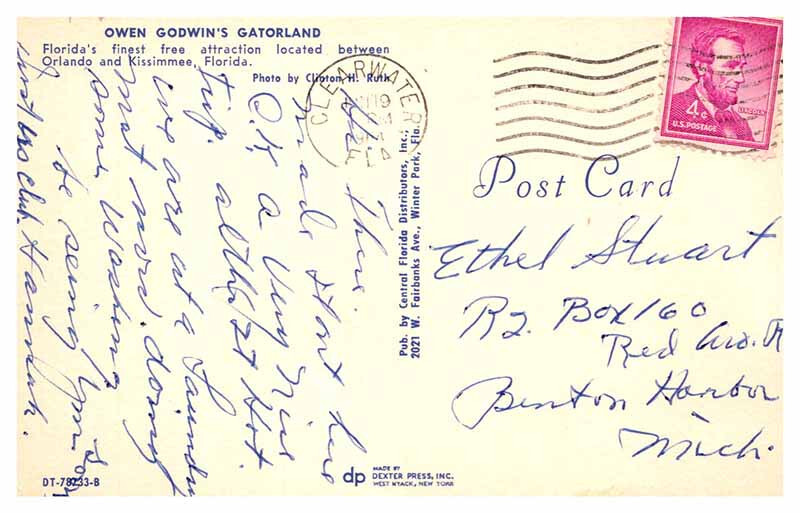 OWEN GODWIN'S GATORLAND
Florida's finest free attraction located between
Orlando and Kissimmee, Florida.
Photo by Clinton H. Ruth
CLEARWATER
19
PM
FLA
4¢
LINCOLN
U.S. POSTAGE
Post Card
Ethel Stuart
R2. Box 160
Red
Benton Harbor
Mich.
Hi There.
made it here
O.K. a very nice
trip. altho it Hot.
we are at a Laundry
mat now. doing
some Washing
be seeing you
Hannah.
Pub. by Central Florida Distributors, Inc.,
2021 W. Fairbanks Ave., Winter Park, Fla.
DT-78233-B
dp
MADE BY
DEXTER PRESS, INC.
WEST NYACK, NEW YORK